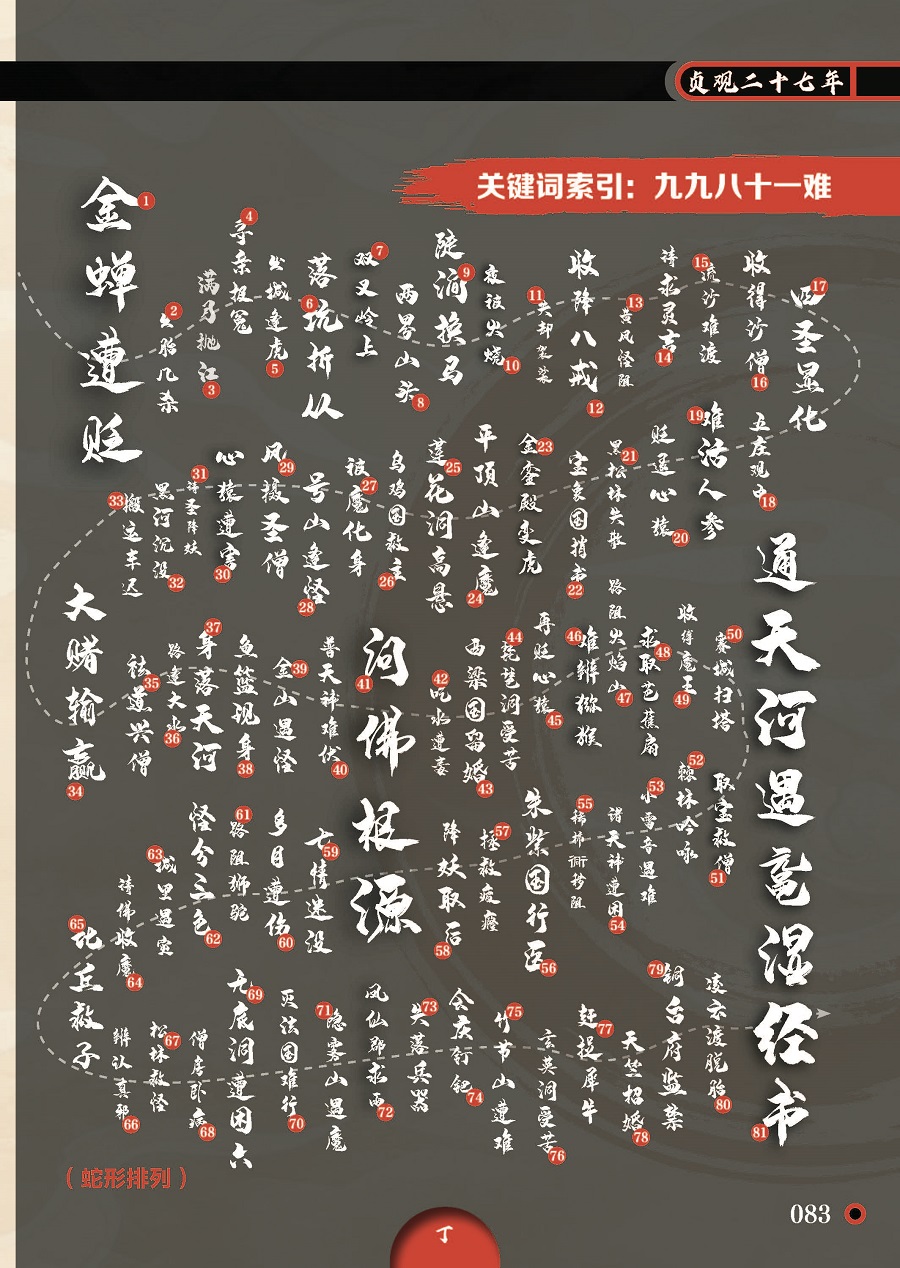 贞观二十七年
关键词索引：九九八十一难
1 金蝉遭贬
2 出胎几杀
3 满月抛江
4 寻亲报冤
5 出城逢虎
6 落坑折从
7 双叉岭上
8 两界山头
9 陡涧换马
10 夜被火烧
11 失却袈裟
12 收降八戒
13 黄风怪阻
14 请求灵吉
15 流沙难渡
16 收得沙僧
17 四圣显化
18 五庄观中
19 难活人参
20 贬退心猿
21 黑松林失散
22 宝象国捎书
23 金銮殿变虎
24 平顶山逢魔
25 莲花洞高悬
26 乌鸡国救主
27 被魔化身
28 号山逢怪
29 风摄圣僧
30 心猿遭害
31 请圣降妖
32 黑河沉没
33 搬运车迟
34 大赌输赢
35 祛道兴僧
36 路逢大水
37 身落天河
38 鱼篮现身
39 金山遇怪
40 普天神难伏
41 问佛根源
42 吃水遭毒
43 西梁国留婚
44 琵琶洞受苦
45 再贬心猿
46 难辨猕猴
47 路阻火焰山
48 求取芭蕉扇
49 收缚魔王
50 赛城扫塔
51 取宝救僧
52 棘林吟咏
53 小雷音遇难
54 诸天神遭困
55 稀柿衕秽阻
56 朱紫国行医
57 拯救疲癃
58 降妖取后
59 七情迷没
60 多目遭伤
61 路阻狮驼
62 怪分三色
63 城里遇灾
64 请佛收魔
65 比丘救子
66 辨认真邪
67 松林救怪
68 僧房卧病
69 无底洞遭困六
70 灭法国难行
71 隐雾山遇魔
72 凤仙郡求雨
73 失落兵器
74 会庆钉钯
75 竹节山遭难
76 玄英洞受苦
77 赶捉犀牛
78 天竺招婚
79 铜台府监禁
80 凌云渡脱胎
81 通天河遇鼋湿经书
（蛇形排列）
083
丁